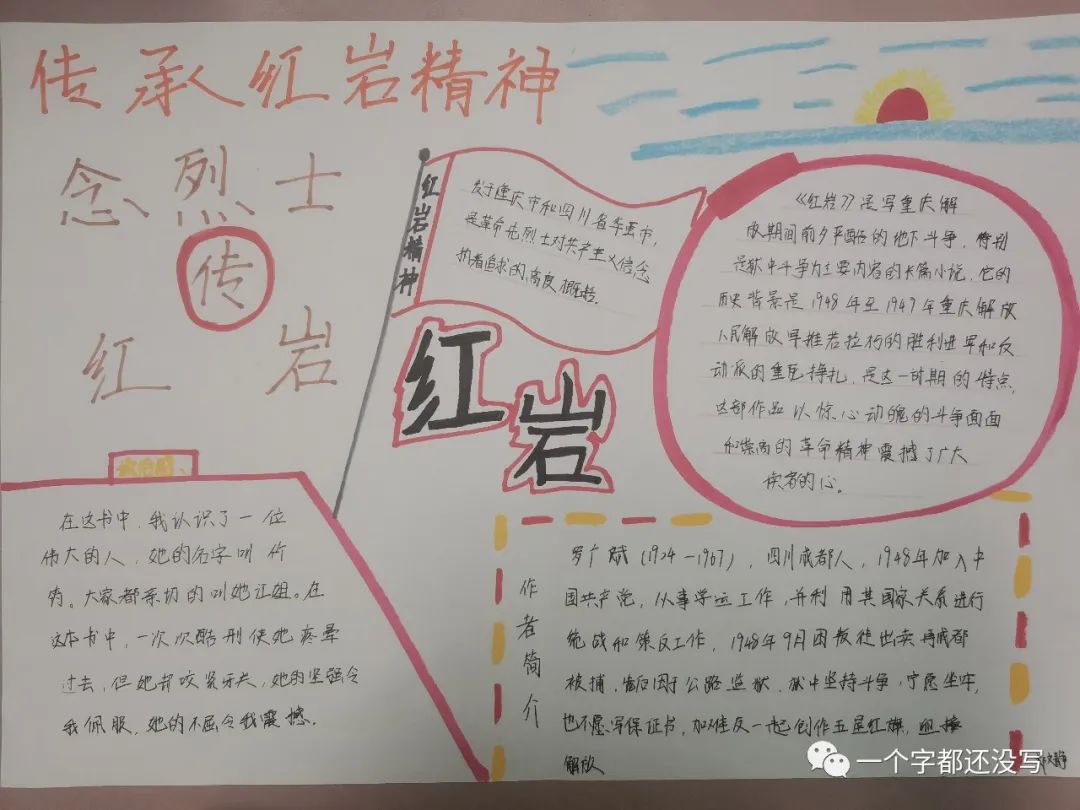 传承红岩精神
念烈士
传
红岩
红岩精神
发于重庆市和四川省华蓥市,
是革命先烈士对共产主义信念
执着追求的高度概括.
红岩
《红岩》是写重庆解
放期间前夕严酷的地下斗争,特别
是狱中斗争为主要内容的长篇小说,它的
历史背景是1948年至1947年重庆解放
人民解放军推若拉朽的胜利进军和反
动派的垂死挣扎,是这一时期的特点,
这部作品以惊心动魄的斗争画面
和崇高的革命精神震撼了广大
读者的心。
读后感
在这书中,我认识了一位
伟大的人,她的名字叫竹
筠。大家都亲切的叫她江姐。在
这本书中,一次次酷刑使她疼晕
过去,但她却咬紧牙关,她的坚强令
我佩服,她的不屈令我震撼.
作者简介
罗广斌(1924-1967),四川成都人,1948年加入中
国共产党,从事学运工作,并利用其国家关系进行
统战和策反工作,1948年9月因叛徒出卖再成都
被捕,囚于公路监狱,狱中坚持斗争,宁愿坐牢,
也不愿写保证书,加难友一起创作五星红旗,迎接
解放
文静
一个字都还没写